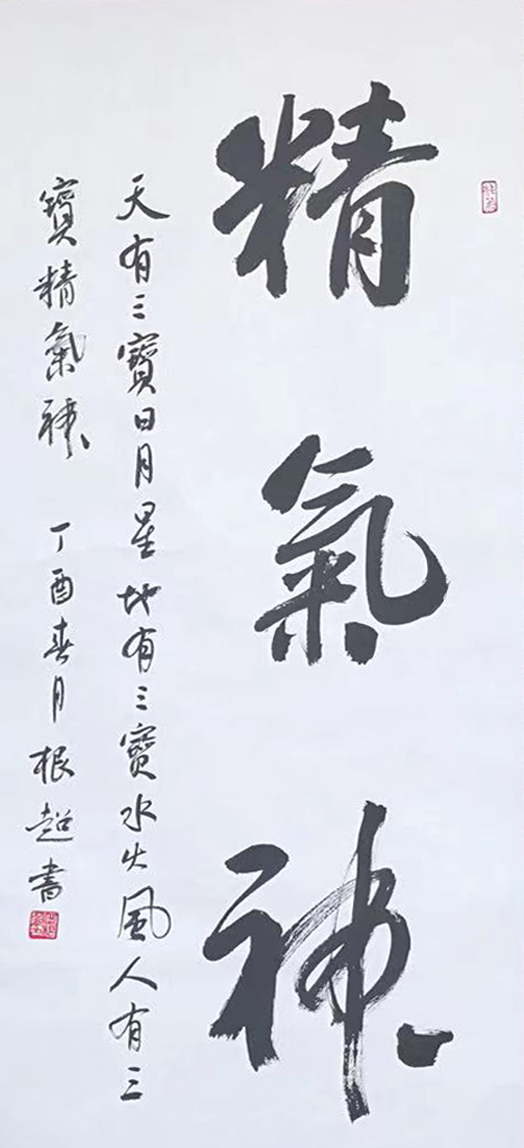 精氣神
天有三寶日月星地有三寶水火風人有三
寶精氣神
丁酉春月根超書